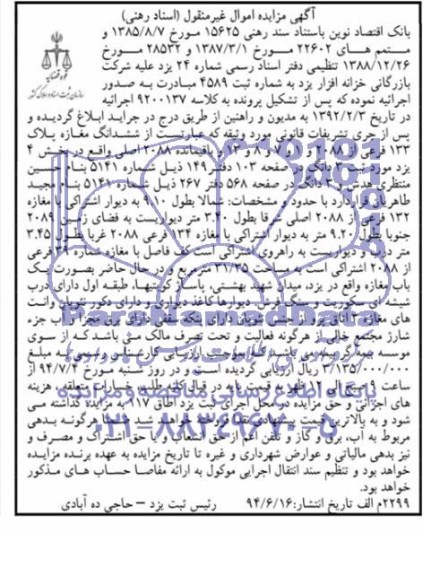 آگهی مزایده اموال غیرمنقول (اسناد رهنی)
بانک اقتصاد نوین باستناد سند رهنی ۱۵۶۲۵ مورخ ۱۳۸۵/۸/۷ و
متمم های ۲۲۶۰۲ مورخ ۱۳۸۷/۳/۱ و ۲۸۵۳۲ مورخ
۱۳۸۸/۱۲/۲۶ تنظیمی دفتر اسناد رسمی شماره ۲۴ یزد علیه شرکت
بازرگانی خزانه افزار یزد به شماره ثبت ۴۵۸۹ مبادرت به صدور
اجرائیه نموده که پس از تشکیل پرونده به کلاسه ۹۲۰۰۱۳۷ اجرائیه
در تاریخ ۱۳۹۲/۲/۳ به مدیون و راهنین از طریق درج در جراید ابلاغ گردیده و
پس از جری تشریفات قانونی مورد وثیقه که عبارتست از ششدانگ مغازه پلاک
۱۳۳ فرعی از ۲۰۸۸ و ۷ و ۸ و ۸۳ باقیمانده ۲۰۸۸ اصلی واقع در بخش ۴
یزد مورد ثبت ۳ دانگ در صفحه ۱۰۳ دفتر ۱۴۹ ذیل شماره ۵۱۴۱ بنام حسین
منتظری هدش و ۳ دانگ در صفحه ۵۶۸ دفتر ۲۶۷ ذیل شماره ۵۱۴۱ بنام مجید
طاهریان قرارداد با حدود و مشخصات: شمالا بطول ۹.۱۰ به دیوار اشتراکی با مغازه
۱۳۲ فرعی از ۲۰۸۸ اصلی شرقا بطول ۳.۴۰ متر دیواریست به فضای زمین ۲۰۸۹
جنوبا بطول ۹.۲۰ متر به دیوار اشتراکی با مغازه ۱۳۴ فرعی ۲۰۸۸ غربا بطول ۳.۴۵
متر درب و دیواریست به راهروی اشتراکی است کف فاصل با مغازه شماره فرعی
از ۲۰۸۸ اشتراکی است به مساحت ۳۱/۲۵ مترمربع و در حال حاضر بصورت یک
باب مغازه واقع در یزد، میدان شهید بهشتی، پاساژ طبقه اول دارای درب
شیشه ای سکوریت و سنگ فرش، دیوارها کاغذ دیواری و دارای دکور
مغازه جزء
شارژ مجتمع خالی از هرگونه فعالیت و تحت تصرف مالک می باشد که از سوی
موسسه بیمه
۳/۱۳۵/۰۰۰/۰۰۰ ریال ارزیابی گردیده است و در روز شنبه مورخ ۹۴/۷/۴ از
ساعت ۹ صبح الی ۱۲ ظهر به قیمت پایه در قبال کلیه طلب، خسارات متعلقه، هزینه
های اجرائی و حق مزایده در محل اجرای ثبت یزد اطاق ۱۱۷ به مزایده گذاشته می
شود و به بالاترین قیمت پیشنهادی نقدا فروخته خواهد شد ضمنا هرگونه بدهی
مربوط به آب، برق و گاز و تلفن اعم از حق انشعاب یا حق اشتراک و مصرف و
نیز بدهی مالیاتی و عوارض شهرداری و غیره تا تاریخ مزایده به عهده برنده مزایده
خواهد بود و تنظیم سند انتقال اجرایی موکول به ارائه مفاصا حساب های مذکور
خواهد بود.
۲۲۹۹م الف تاریخ انتشار: ۹۴/۶/۱۶ رئیس ثبت یزد – حاجی ده آبادی
ParsNamadData
پایگاه اطلاع رسانی مناقصه و مزایده
۰۲۱-۸۸۳۴۹۶۷۰-۵